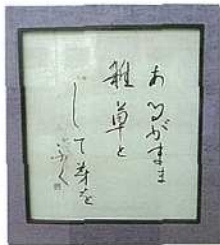 あるがまま
雑草と
して芽を
ふく